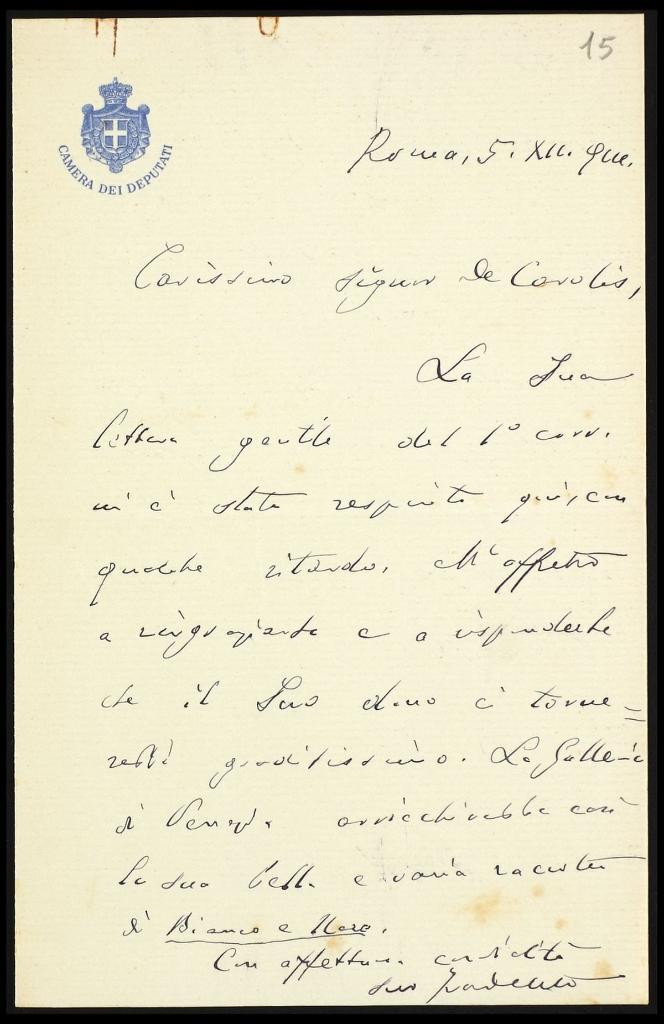 15
CAMERA DEI DEPUTATI
Roma, 5. XII. 911.
Carissimo Signor De Carolis,
La Sua
lettera gentile del 1° corr.
mi è stata respinta qui, con
qualche ritardo. M'affretto
a ringraziarla e a risponderLe
che il Suo dono ci torne=
rebbe graditissimo. La Galleria
di Venezia arricchirebbe così
la sua bella e varia raccolta
di Bianco e Nero.
Con affettuosa cordialità
Suo Fradeletto